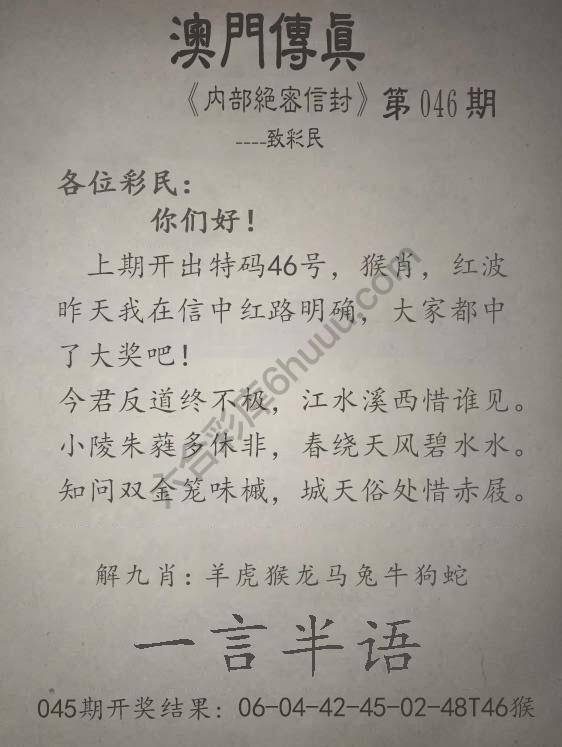 澳門傳眞
《内部絕密信封》第046期
----致彩民
各位彩民：
你们好！
上期开出特码46号，猴肖，红波
昨天我在信中红路明确，大家都中
了大奖吧！
今君反道终不极，江水溪西惜谁见。
小陵朱蕤多休非，春绕天风碧水水。
知问双金笼味槭，城天俗处惜赤屐。
六合彩库6huuu.com
解九肖：羊虎猴龙马兔牛狗蛇
一言半语
045期开奖结果：06-04-42-45-02-48T46猴